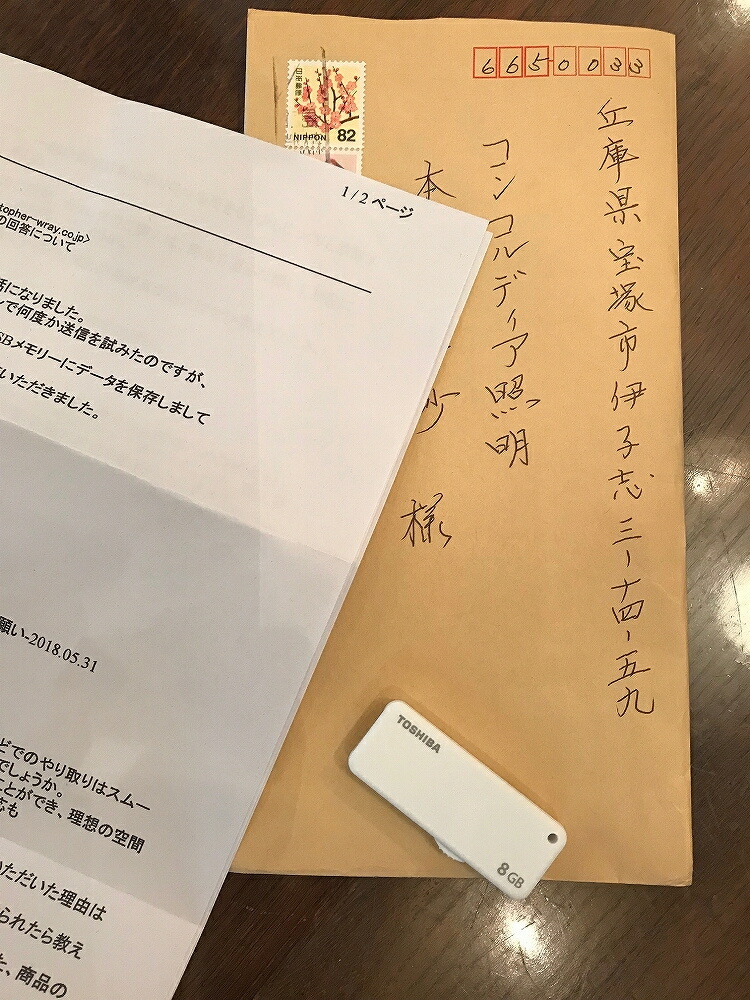 6650033
兵庫県宝塚市伊孑志三-十四-五九
コンコルディア照明
本
紗 様
日本郵便
NIPPON 82
1/2 ページ
topher-wray.co.jp>
の回答について
話になりました。
ンで何度か送信を試みたのですが、
SBメモリーにデータを保存しまして
いただきました。
願い-2018.05.31
どでのやり取りはスムー
でしょうか。
ことができ、理想の空間
応も
いただいた理由は
られたら教え
た、商品の
TOSHIBA
8GB